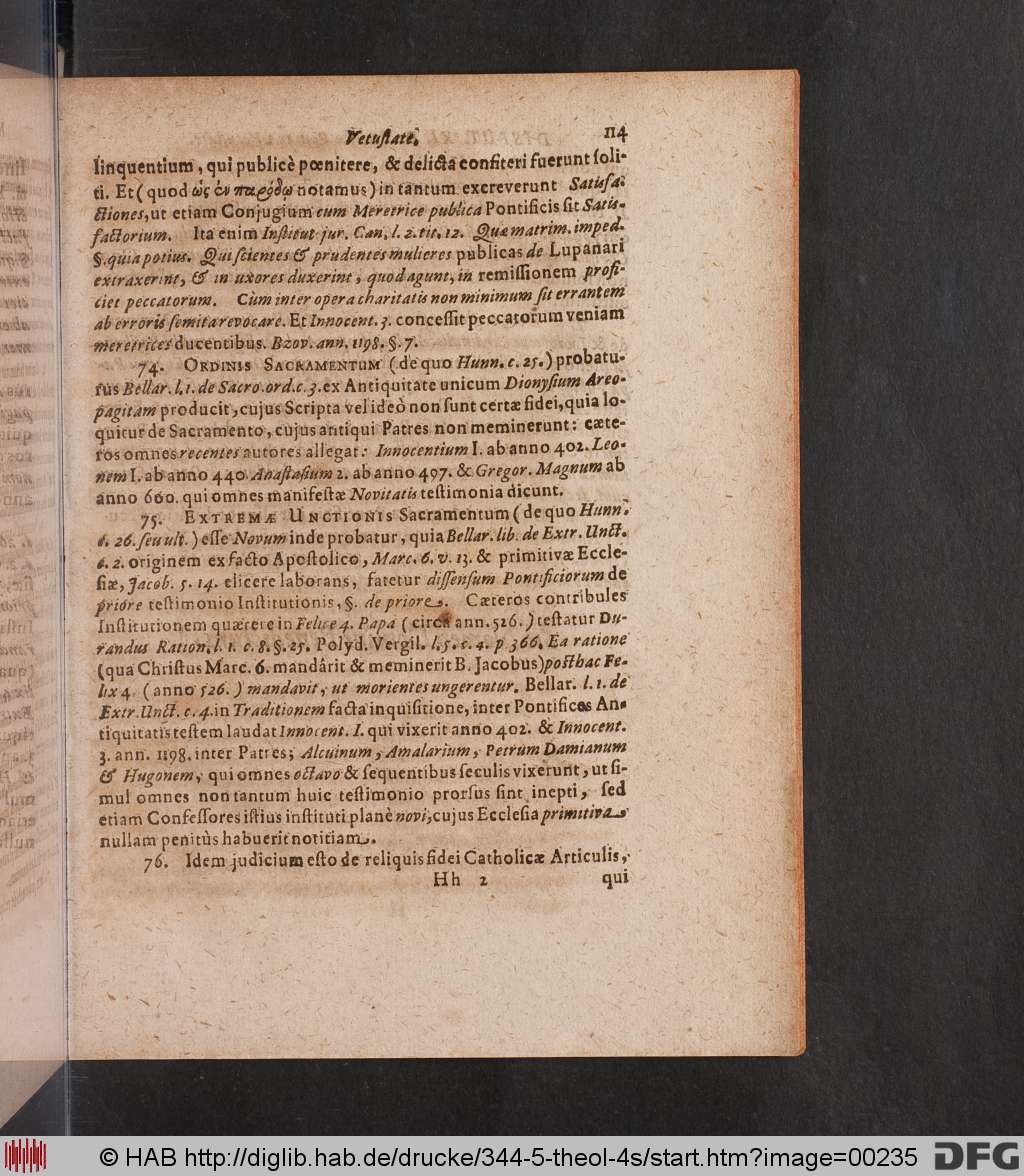 Vetustate. 114
linquentium, qui publicè pœnitere, & delicta confiteri fuerunt soli-
ti. Et (quod ὡς ἐν παρόδῳ notamus) in tantum excreverunt Satisfa-
ctiones, ut etiam Conjugium cum Meretrice publica Pontificis sit Satis-
factorium. Ita enim Institut. jur. Can. l. 2. tit. 12. Quæ matrim. imped.
§. quia potius. Qui scientes & prudentes mulieres publicas de Lupanari
extraxerint, & in uxores duxerint, quod agunt, in remissionem profi-
ciet peccatorum. Cùm inter opera charitatis non minimum sit errantem
ab erroris semita revocare. Et Innocent. 3. concessit peccatorum veniam
meretrices ducentibus. Bzov. ann. 1198. §. 7.
74. ORDINIS SACRAMENTUM (de quo Hunn. c. 25.) probatu-
rus Bellar. l. 1. de Sacro. ord. c. 3. ex Antiquitate unicum Dionysium Areo-
pagitam producit, cujus Scripta vel ideò non sunt certæ fidei, quia lo-
quitur de Sacramento, cujus antiqui Patres non meminerunt: cæte-
ros omnes recentes autores allegat: Innocentium I. ab anno 402. Leo-
nem I. ab anno 440. Anastasium 2. ab anno 497. & Gregor. Magnum ab
anno 600. qui omnes manifestæ Novitatis testimonia dicunt.
75. EXTREMÆ UNCTIONIS Sacramentum (de quo Hunn.
c. 26. seu ult.) esse Novum inde probatur, quia Bellar. lib. de Extr. Unct.
c. 2. originem ex facto Apostolico, Marc. 6. v. 13. & primitivæ Eccle-
siæ, Jacob. 5. 14. elicere laborans, fatetur dissensum Pontificiorum de
priore testimonio Institutionis, §. de priore. Cæteros contribules
Institutionem quærere in Felice 4. Papa (circa ann. 526.) testatur Du-
randus Ration. l. 1. c. 8. §. 25. Polyd. Vergil. l. 5. c. 4. p 366. Ea ratione
(qua Christus Marc. 6. mandârit & meminerit B. Jacobus) posthac Fe-
lix 4. (anno 526.) mandavit, ut morientes ungerentur. Bellar. l. 1. de
Extr. Unct. c. 4. in Traditionem facta inquisitione, inter Pontifices An-
tiquitatis testem laudat Innocent. I. qui vixerit anno 402. & Innocent.
3. ann. 1198. inter Patres; Alcuinum, Amalarium, Petrum Damianum
& Hugonem, qui omnes octavo & sequentibus seculis vixerunt, ut si-
mul omnes non tantum huic testimonio prorsus sint inepti, sed
etiam Confessores istius instituti planè novi, cujus Ecclesia primitiva
nullam penitùs habuerit notitiam.
76. Idem judicium esto de reliquis fidei Catholicæ Articulis,
Hh 2 qui
© HAB http://diglib.hab.de/drucke/344-5-theol-4s/start.htm?image=00235
DFG